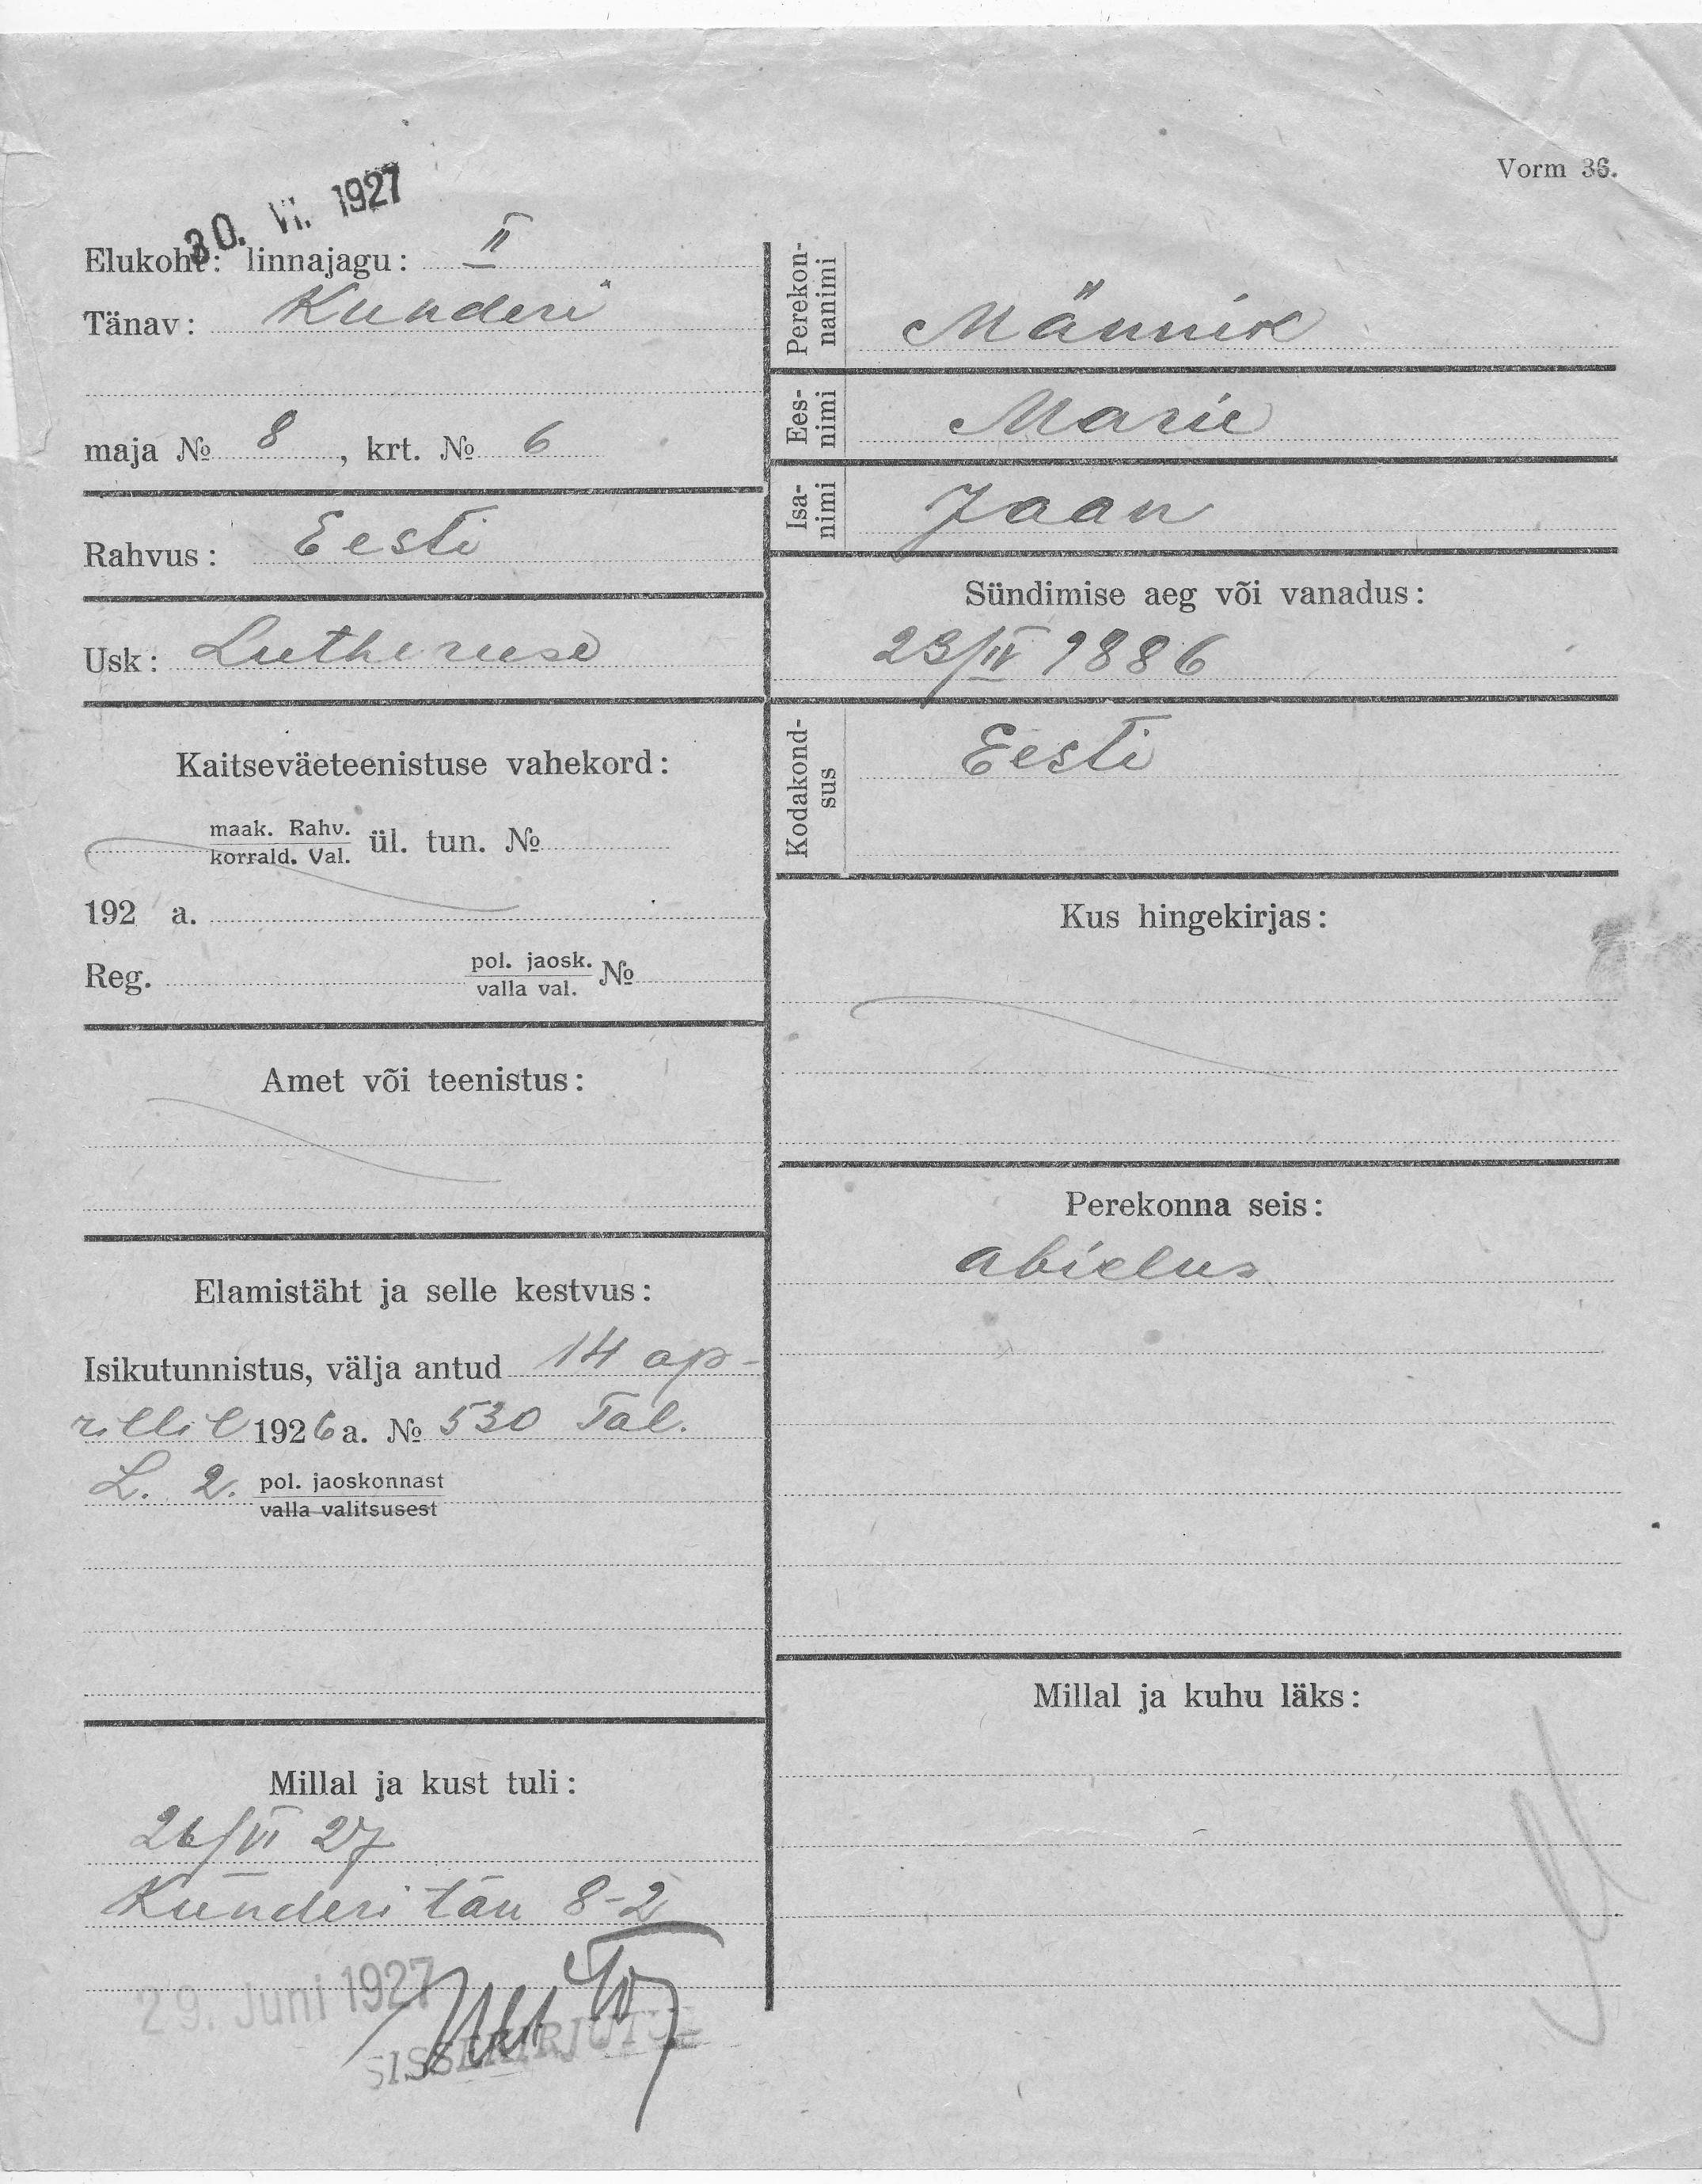 Vorm 36.
30. VI. 1927
Elukoht: linnajagu: II
Tänav: Kunderi
maja № 8, krt. № 6
Rahvus: Eesti
Usk: Lutheruse
Kaitseväeteenistuse vahekord:
maak. Rahv.
korrald. Val. ül. tun. №
192 a.
Reg. pol. jaosk. №
valla val.
Amet või teenistus:
Elamistäht ja selle kestvus:
Isikutunnistus, välja antud 14 ap-
rillil 1926 a. № 530 Tal.
L. 2. pol. jaoskonnast
valla valitsusest
Millal ja kust tuli:
26/VI 27
Kunderi tän 8-2
29. Juni 1927
SISSEKIRJUTUS
Perekon-
nanimi Männik
Ees-
nimi Marie
Isa-
nimi Jaan
Sündimise aeg või vanadus:
23/IV 1886
Kodakond-
sus Eesti
Kus hingekirjas:
Perekonna seis:
abielus
Millal ja kuhu läks: